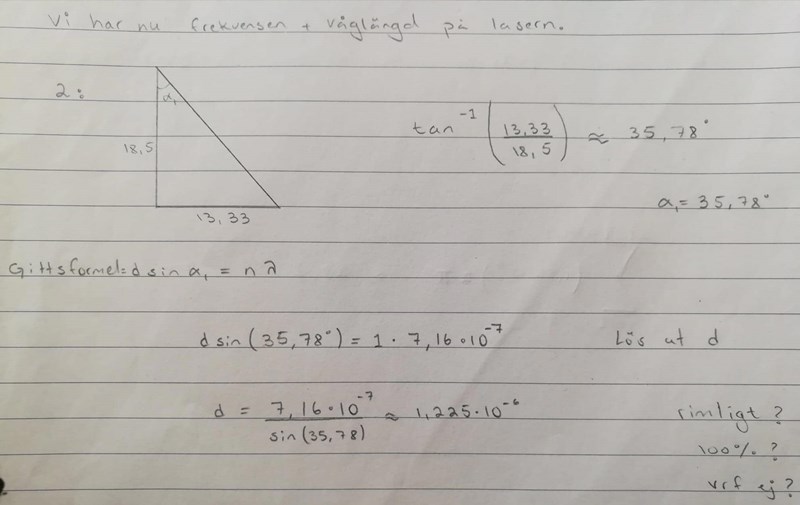 Vi har nu frekvensen + våglängd på lasern.
2:
α₁
18,5
13,33
tan⁻¹(13,33/18,5) ≈ 35,78°
α₁ = 35,78°
Gittsformel: d sin α₁ = n λ
d sin(35,78°) = 1 · 7,16·10⁻⁷ Lös ut d
d = 7,16·10⁻⁷/sin(35,78) ≈ 1,225·10⁻⁶ rimligt?
100%?
vrf ej?